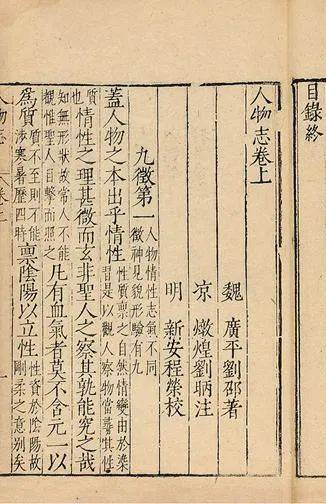 目錄終
人物志卷上
魏 廣平劉邵著
凉 燉煌劉昞注
明 新安程榮校
九徵第一 人物情性志氣不同徵神見貌形驗有九
蓋人物之本出乎情性 性質禀之自然情變由於染習是以觀人察物當尋其性
質也 情性之理甚微而玄非聖人之察其孰能究之哉
知無形狀故常人不能覩惟聖人目擊而照之 凡有血氣者莫不含元一以
爲質 質不至則不能涉寒暑歷四時 禀陰陽以立性 性資於陰陽故剛柔之意别矣